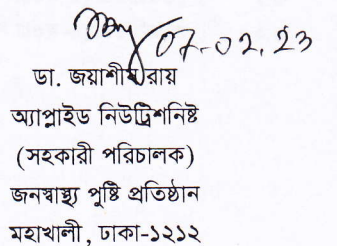 07-02.23
ডা. জয়াশীষ রায়
অ্যাপ্লাইড নিউট্রিশনিষ্ট
(সহকারী পরিচালক)
জনস্বাস্থ্য পুষ্টি প্রতিষ্ঠান
মহাখালী, ঢাকা-১২১২